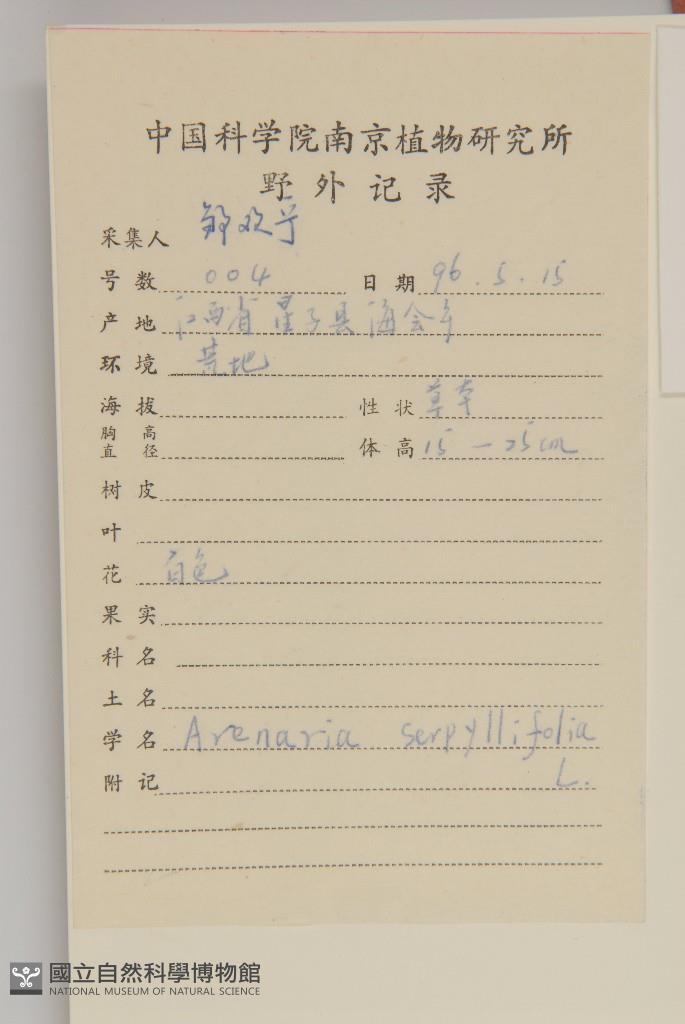 中国科学院南京植物研究所
野外记录
采集人
号数 004 日期 96.5.15
产地 江西省星子县海会乡
环境 荒地
海拔 性状 草本
胸高直径 体高 15—25cm
树皮
叶
花 白色
果实
科名
土名
学名 Arenaria serpyllifolia
附记 L.
國立自然科學博物館
NATIONAL MUSEUM OF NATURAL SCIENCE